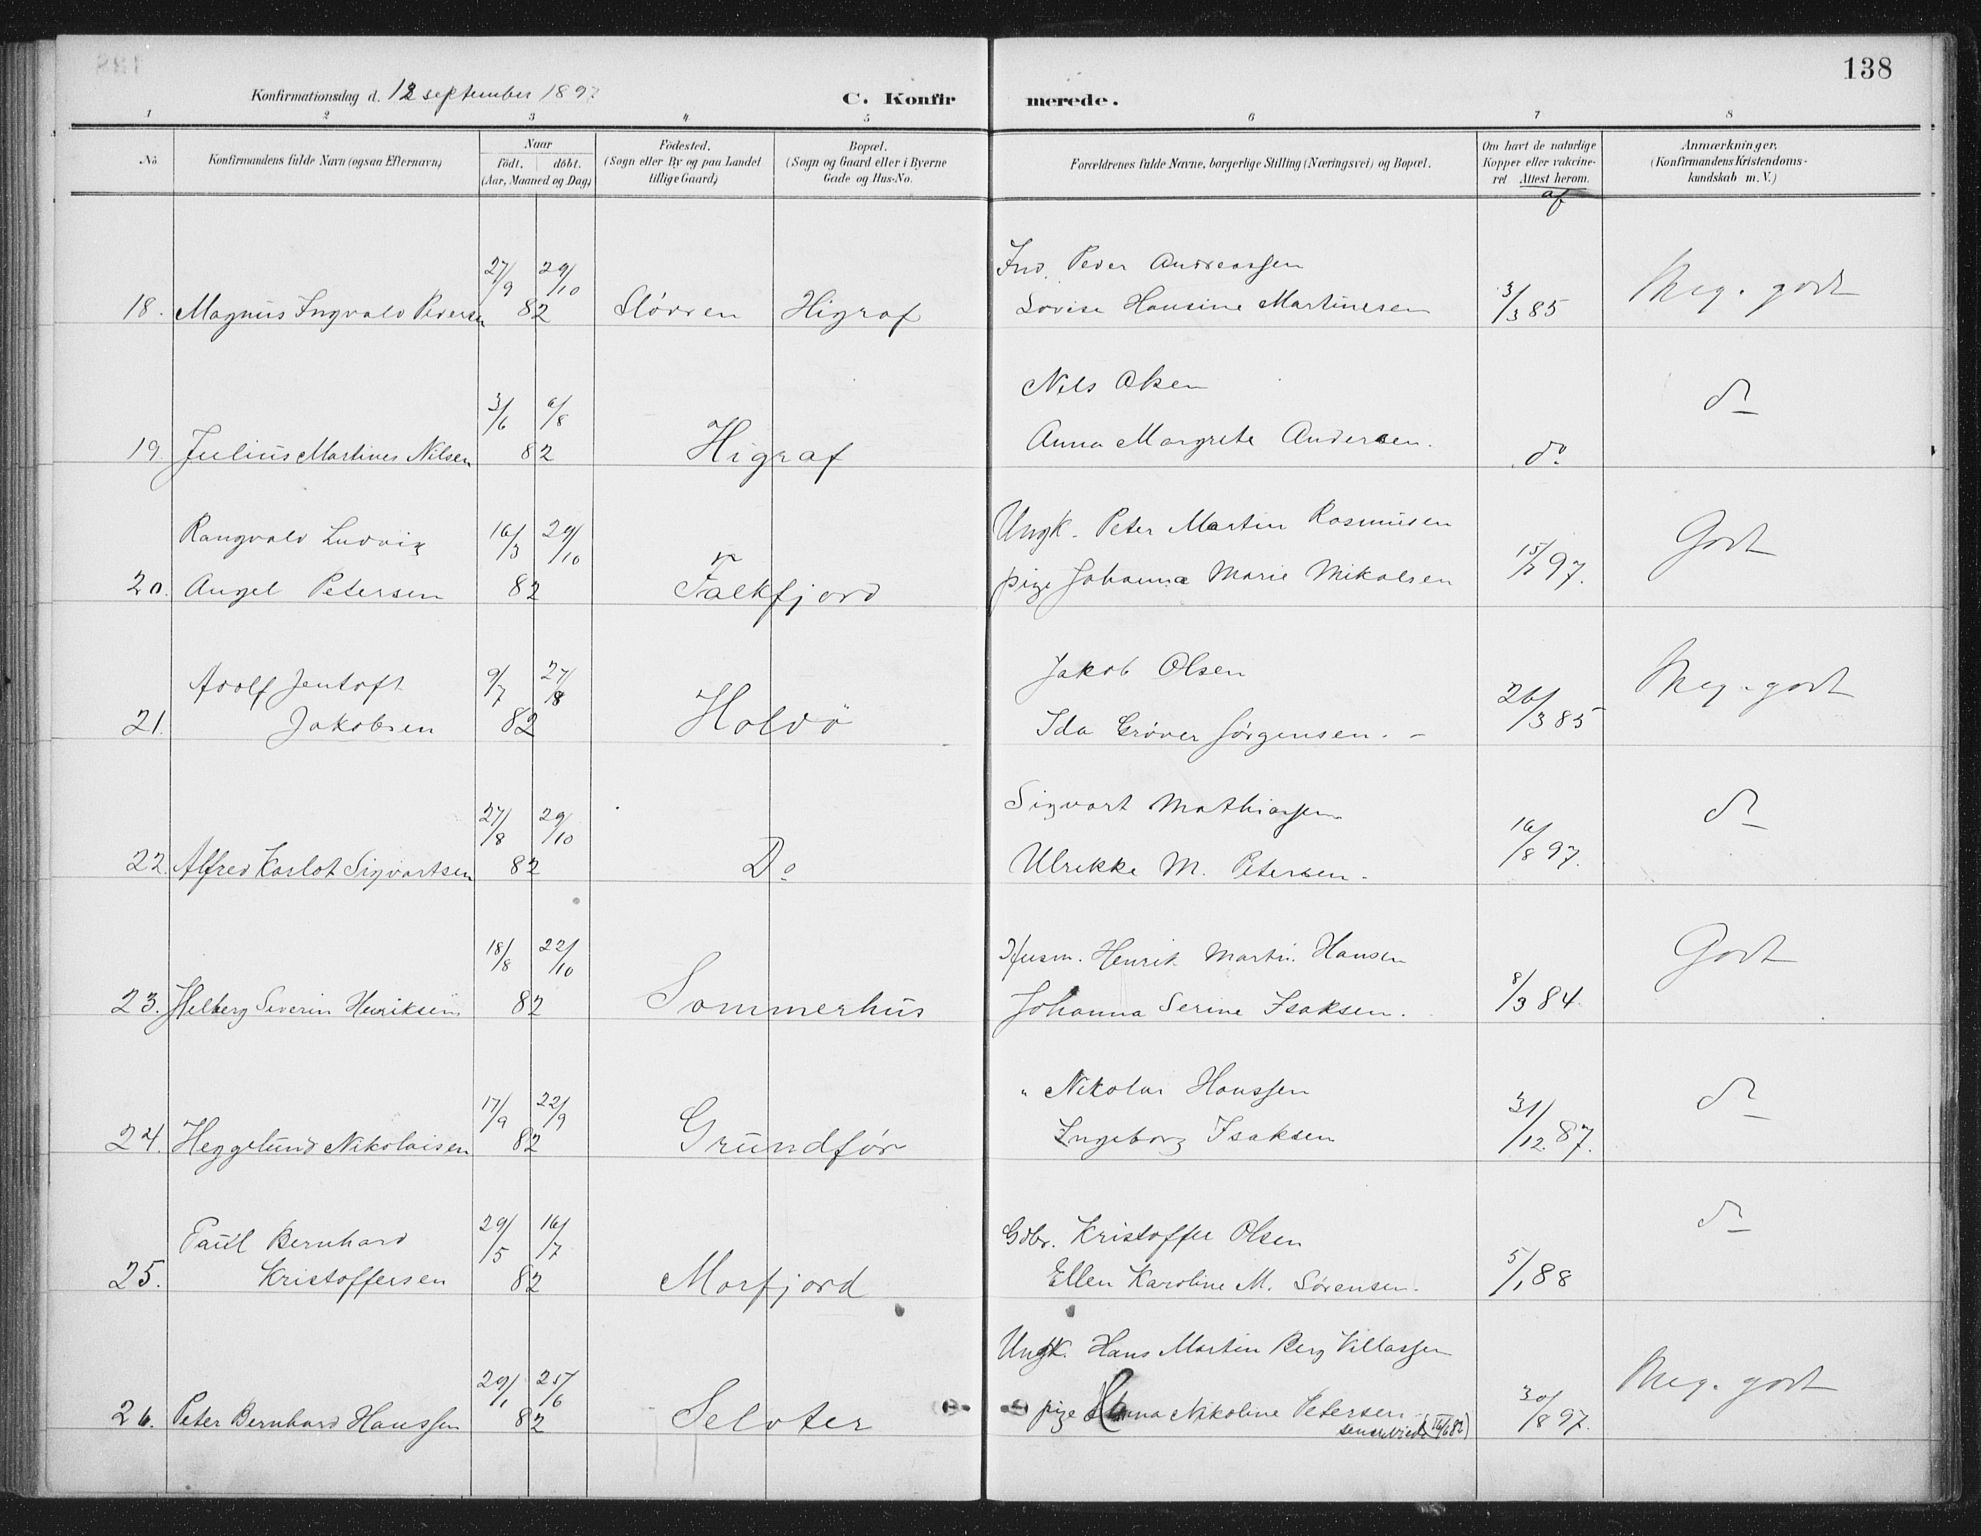 138
Konfirmationsdag d. 12 september 1897
C. Konfirmerede.
1 2 3 4 5 6 7 8
No. Konfirmandens fulde Navn (ogsaa Efternavn) Naar födt. döbt. (Aar, Maaned og Dag) Födested. (Sogn eller By og paa Landet tillige Gaard) Bopæl. (Sogn og Gaard eller i Byerne Gade og Hus-No. Forældrenes fulde Navne, borgerlige Stilling (Næringsvei) og Bopæl. Om havt de naturlige Kopper eller vakcineret Attest herom. af Anmærkninger. (Konfirmandens Kristendomskundskab m. V.)
27/9 29/10 Ind. Peder Andreassen
18. Magnus Ingvald Pedersen 82 Slövren Higraf Lovise Hansine Martinesen 3/3 85 Meg. godt
3/6 6/8 Nils Olsen
19. Julius Martines Nilsen 82 Higraf Anna Margrete Andersen. do. do
Rangvald Ludvig 16/3 29/10 Ungk. Peter Martin Rasmusen
20. Angel Petersen 82 Falkfjord pige Johanna Marie Mikalsen 15/7 97. Godt
Adolf Jentoft 9/7 27/8 Jakob Olsen
21. Jakobsen 82 Holdö Ida Gröver Jörgensen. 26/3 85 Meg. godt
27/8 29/10 Sigvart Mathiassen
22. Alfred Karlot Sigvartsen 82 Do. Ulrikke M. Petersen. 16/8 97. do
18/8 22/10 Husm. Henrik Martin Hansen
23. Helberg Severin Henriksen 82 Sommerhus Johanna Serine Isaksen. 8/3 84. Godt
17/9 22/9 " Nikolai Hanssen
24. Heggelund Nikolaisen 82 Grundför Ingeborg Isaksen 31/12 87. do
Paul Bernhard 29/5 16/7 Gdbr. Kristoffer Olsen
25. Kristoffersen 82 Morfjord Ellen Karoline M. Sörensen. 5/1 88 do
29/1 25/6 Ungk. Hans Martin Berg Villassen
26. Peter Bernhard Hanssen 82 Selöter pige Nikoline Petersen 30/8 97. Meg. godt